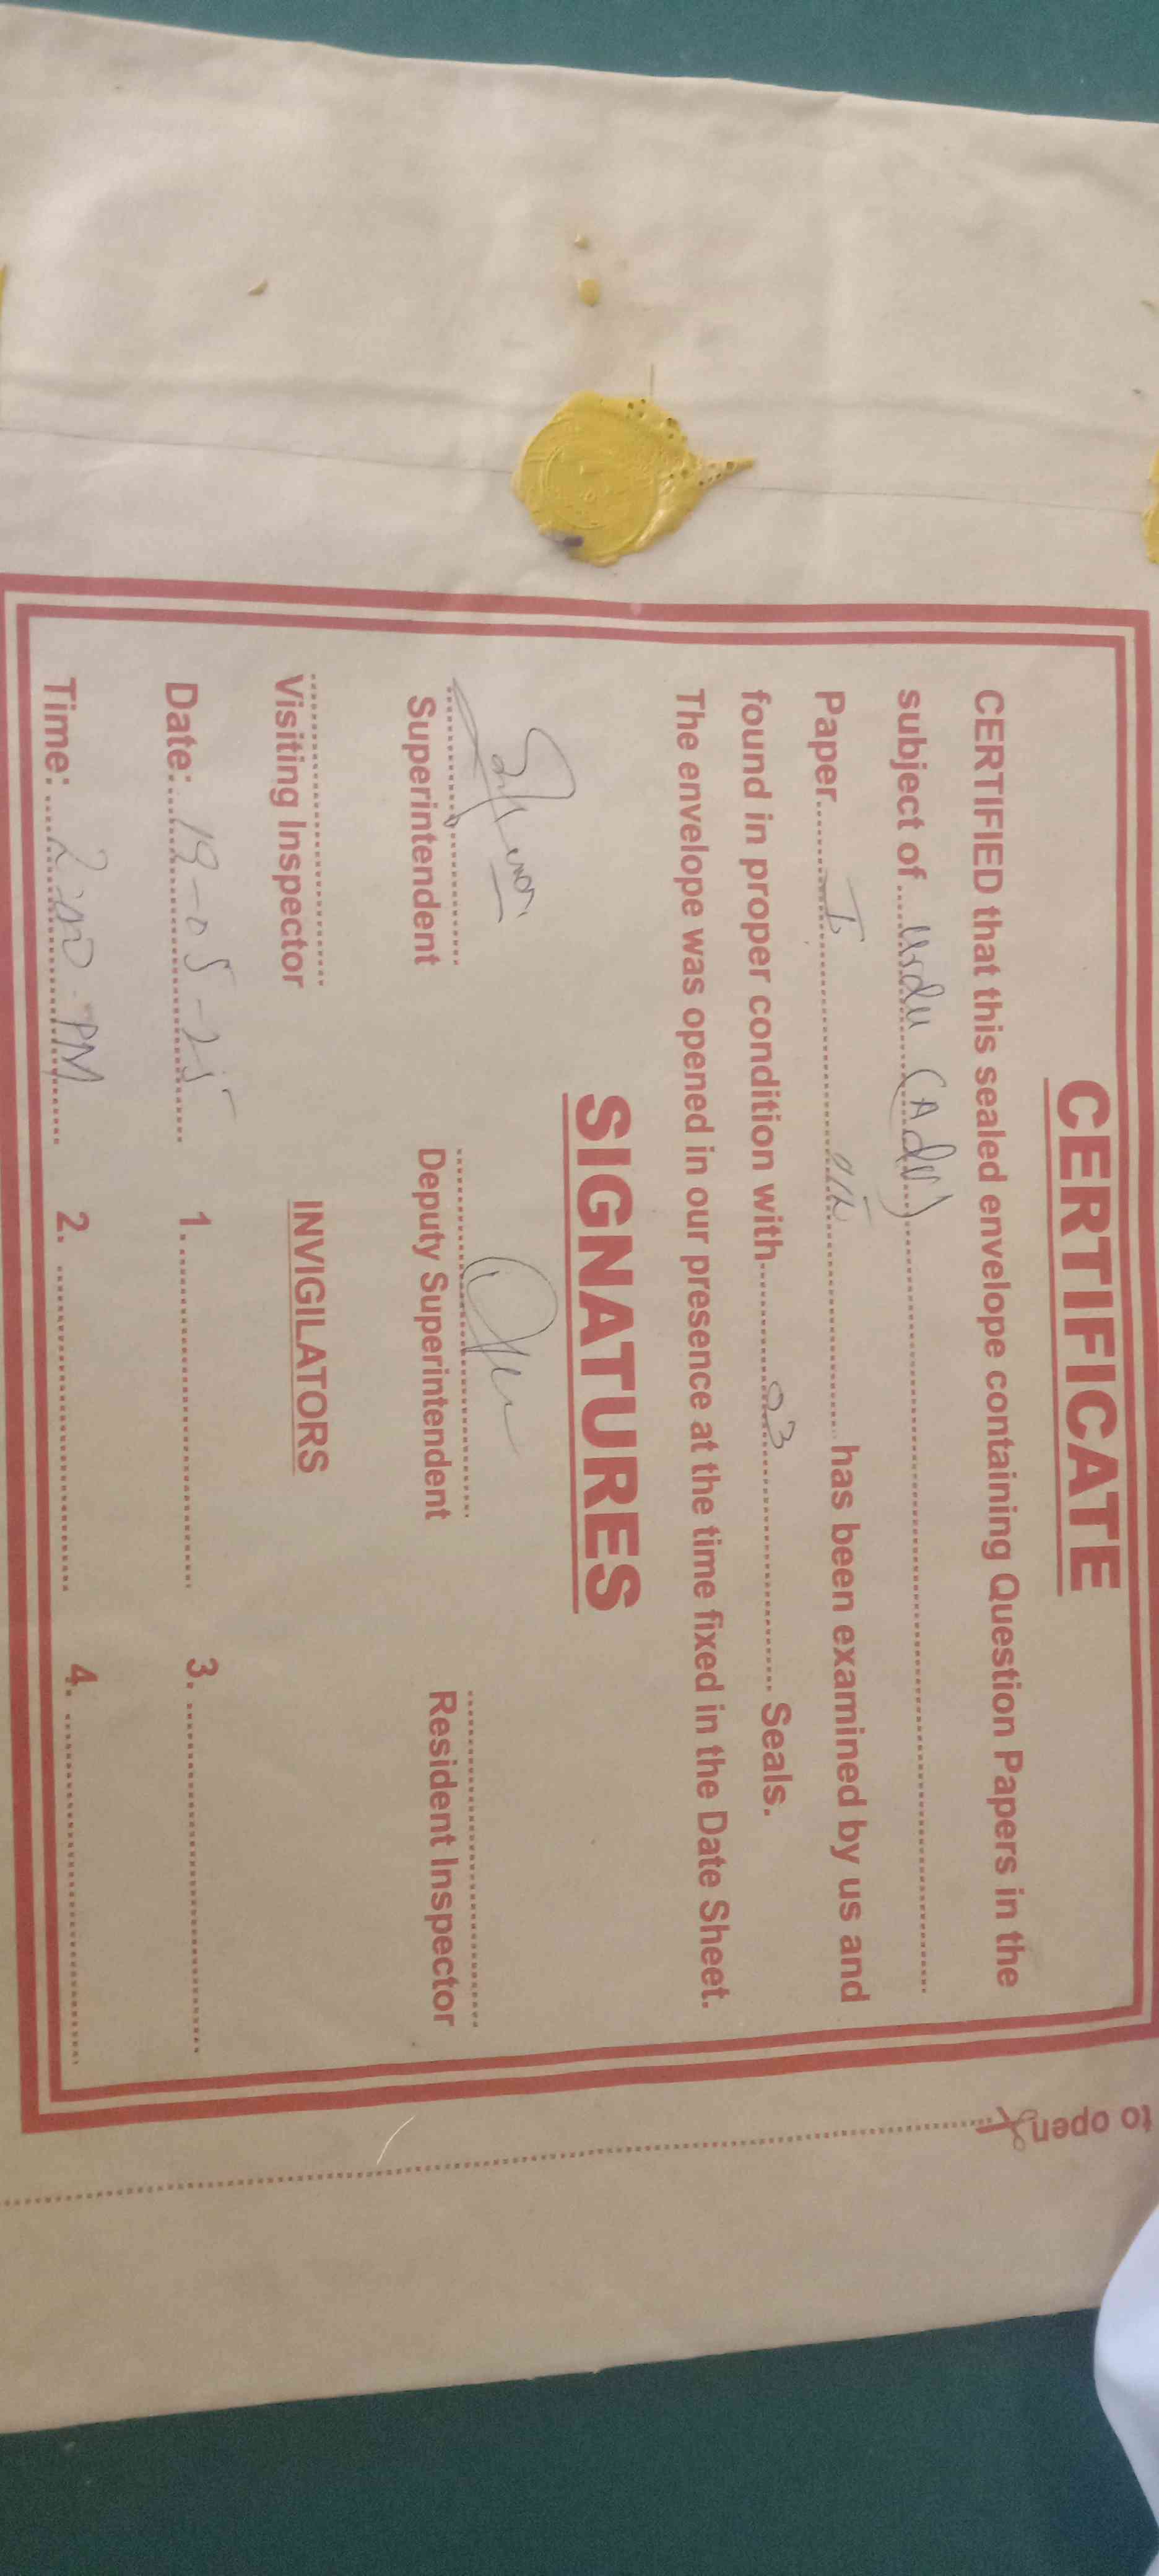 CERTIFICATE
CERTIFIED that this sealed envelope containing Question Papers in the
subject of Urdu (Adv)
Paper I has been examined by us and
found in proper condition with 03 Seals.
The envelope was opened in our presence at the time fixed in the Date Sheet.
SIGNATURES
Superintendent Deputy Superintendent Resident Inspector
Visiting Inspector INVIGILATORS
Date: 19-05-25 1. 3.
Time: 2:00 PM 2. 4.
to open